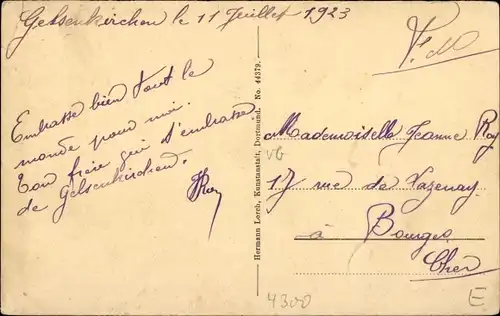 Gelsenkirchen le 11 Juillet 1923
F.M
Embrasse bien tout le
monde pour moi.
Ton frère qui t'embrasse
de Gelsenkirchen.
JRoy
Hermann Lorch, Kunstanstalt, Dortmund. No. 44379.
Mademoiselle Jeanne Roy
VG
17 rue de Vazenay
à Bourges
Cher
4300
E